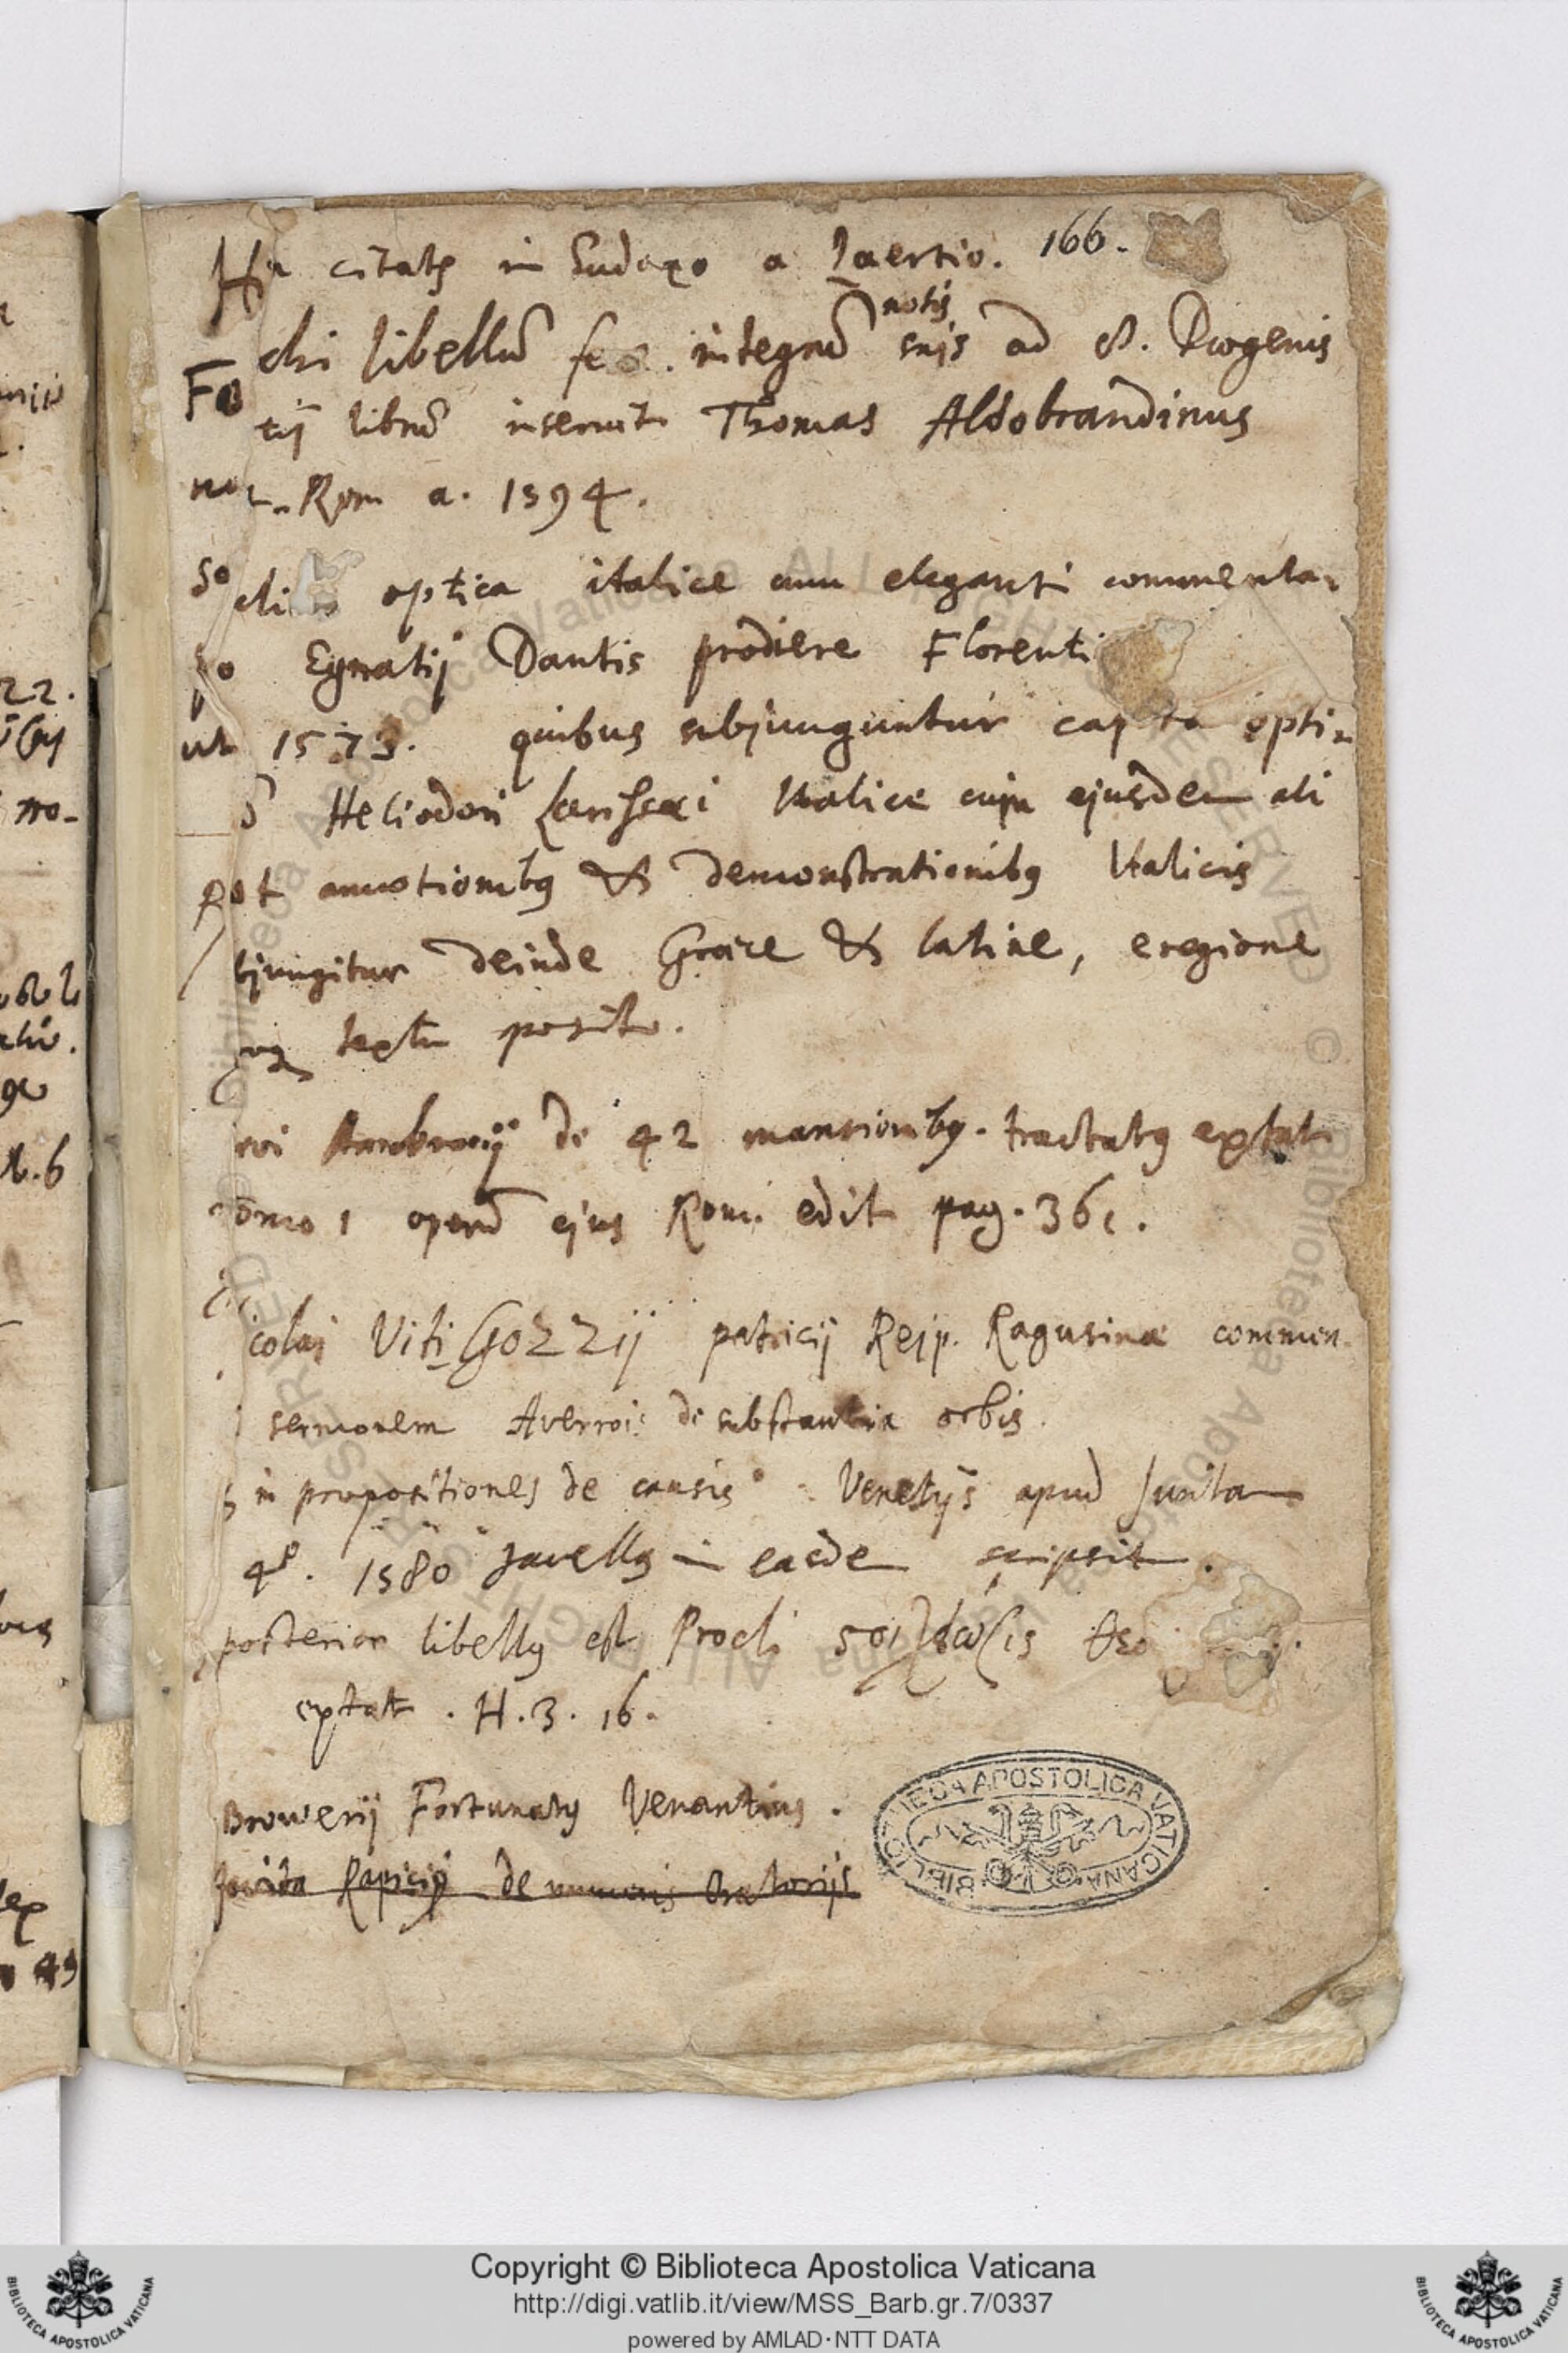 citatꝰ in Eudoxo a Laertio. 166.
notis
libellū fe integrū suis ad 8. Diogenis
Fo
tij librū inseruit Thomas Aldobrandinus
Rom a. 1594.
So
optica italice cum eleganti commenta-
Egnatij Dantis prodiere Florenti
1573. quibus subjunguntur cap ta opti-
Heliodori Larissaei Italice cum ejusdem ali
ot annotionibꝰ & demonstrationibꝰ Italicis
bjungitur deinde Graece & latine, eregione
textu posito.
Ambrosij de 42 mansionibꝰ. tractatꝰ extat
tomo 1 operū ejus Rom. edit pag. 361.
icolai Viti Gozzij patricij Reip. Ragusinæ commen-
sermonem Averrois de substantia orbis.
in propositiones de causis. Venetijs apud Juntam
4º. 1580 Javellꝰ in easdem scripsit.
posterior libellꝰ est Procli θεο
extat. H. 3. 16.
Broweri̇j Fortunatꝰ Venantius.
Jovita Rapicij de numeris Oratorijs
BIBLIOTHECA APOSTOLICA VATICANA
Copyright © Biblioteca Apostolica Vaticana
http://digi.vatlib.it/view/MSS_Barb.gr.7/0337
powered by AMLAD·NTT DATA